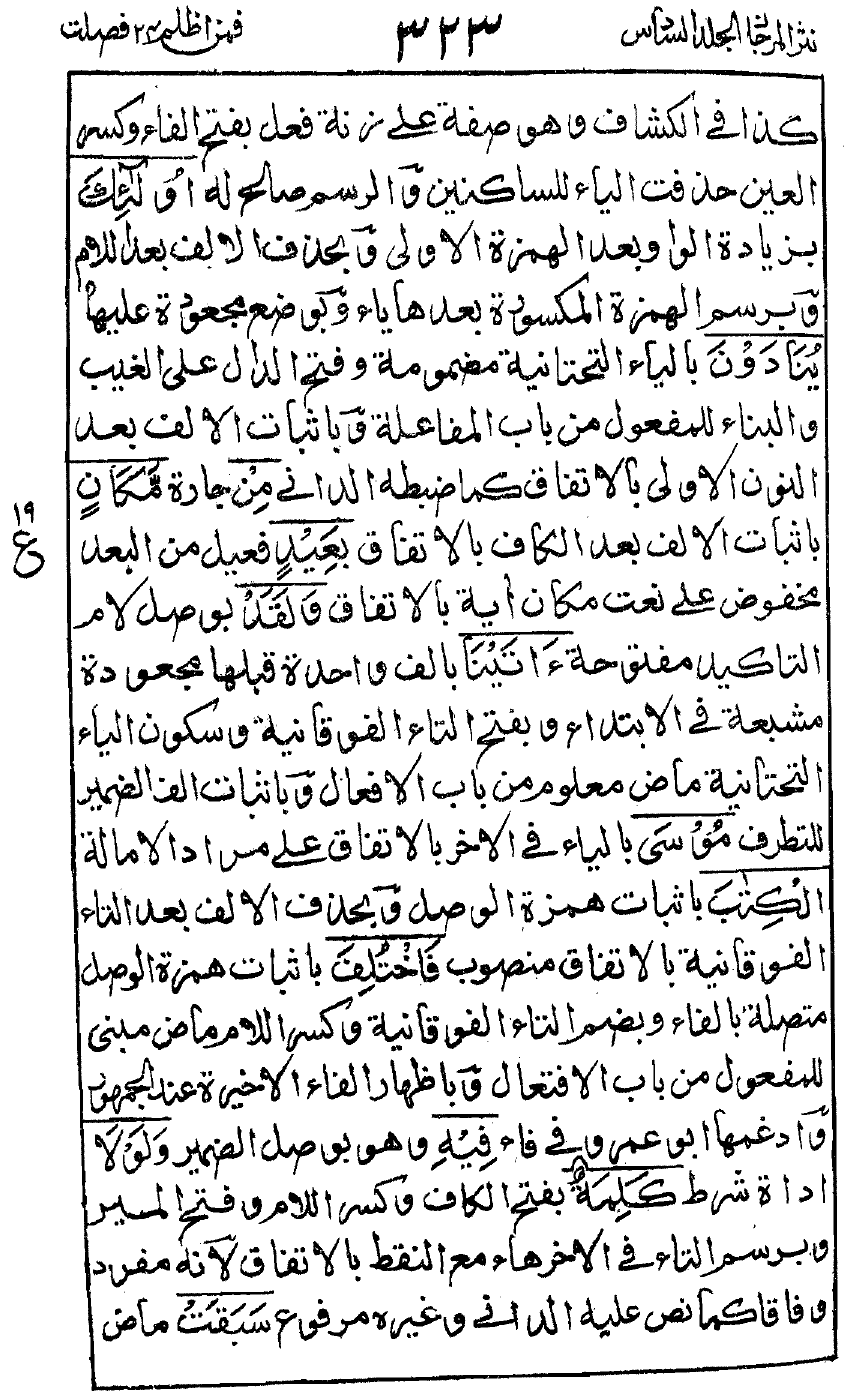 نثر المرجان المجلد السادس ٣٢٣ فمن اظلم ٢٤ فصلت
كذا في الكشاف وهو صفة على زنة فعل بفتح الفاء وكسر
العين حذفت الياء للساكنين وّالرسم صالح له اُولٰٓئِكَ
بزيادة الواو بعد الهمزة الاولى وّبحذف الالف بعد اللام
وّبرسم الهمزة المكسورة بعدها ياء وّبوضع مجعودة عليها
يُنَادَوْنَ بالياء التحتانية مضمومة وفتح الدال على الغيب
والبناء للمفعول من باب المفاعلة وّباثبات الالف بعد
النون الاولى بالاتفاق كما ضبطه الداني مِنْ جارة مَّكَانٍ
باثبات الالف بعد الكاف بالاتفاق بَعِيْدٍ فعيل من البعد
١٩
ع
مخفوض على نعت مكان اٰية بالاتفاق وَلَقَدْ بوصل لام
التاكيد مفتوحة ءَاتَيْنَا بالف واحدة قبلها مجعودة
مشبعة في الابتداء وبفتح التاء الفوقانية وسكون الياء
التحتانية ماض معلوم من باب الافعال وّباثبات الف الضمير
للتطرف مُوْسَى بالياء في الاخر بالاتفاق على مراد الامالة
الْكِتٰبَ باثبات همزة الوصل وّبحذف الالف بعد التاء
الفوقانية بالاتفاق منصوب فَاخْتُلِفَ باثبات همزة الوصل
متصلة بالفاء وبضم التاء الفوقانية وكسر اللام ماض مبنى
للمفعول من باب الافتعال وّباظهار الفاء الاخيرة عند الجمهور
وّادغمها ابو عمرو في فاء فِيْهِ وهو بوصل الضمير وَلَوْلَا
اداة شرط كَلِمَةٌ بفتح الكاف وكسر اللام وفتح الميم
وبرسم التاء في الاخر هاء مع النقط بالاتفاق لّانه مفرد
وفاقا كما نص عليه الداني وغيره مرفوع سَبَقَتْ ماض